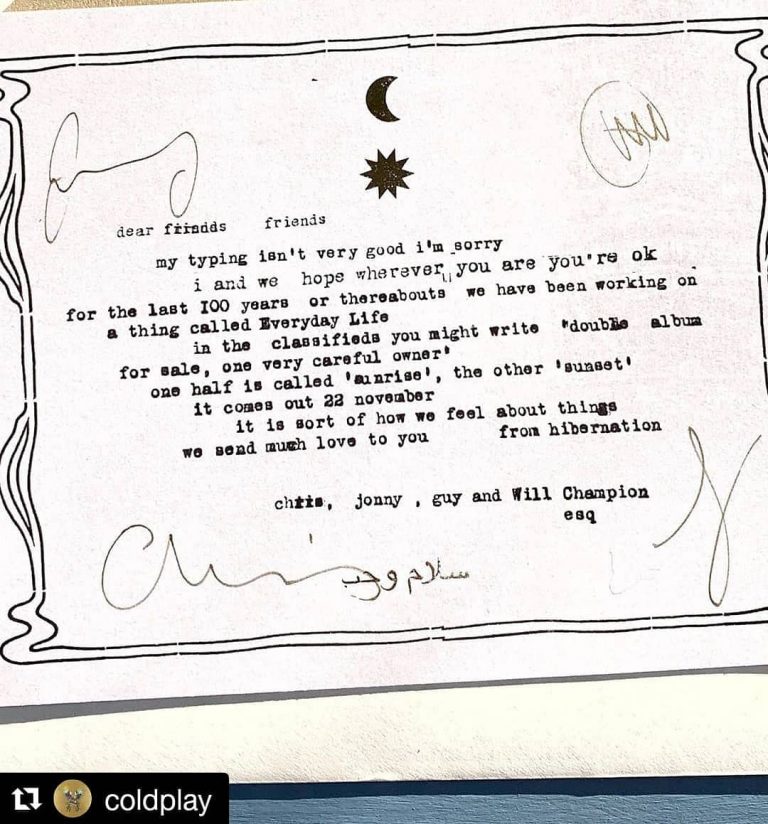 dear friadds friends
my typing isn't very good i'm sorry
i and we hope wherever you are you're ok
for the last I00 years or thereabouts we have been working on
a thing called Everyday Life
in the classifieds you might write 'double album
for sale, one very careful owner'
one half is called 'sunrise', the other 'sunset'
it comes out 22 november
it is sort of how we feel about things
we send much love to you from hibernation
chris, jonny , guy and Will Champion
esq
سلام وحب
coldplay